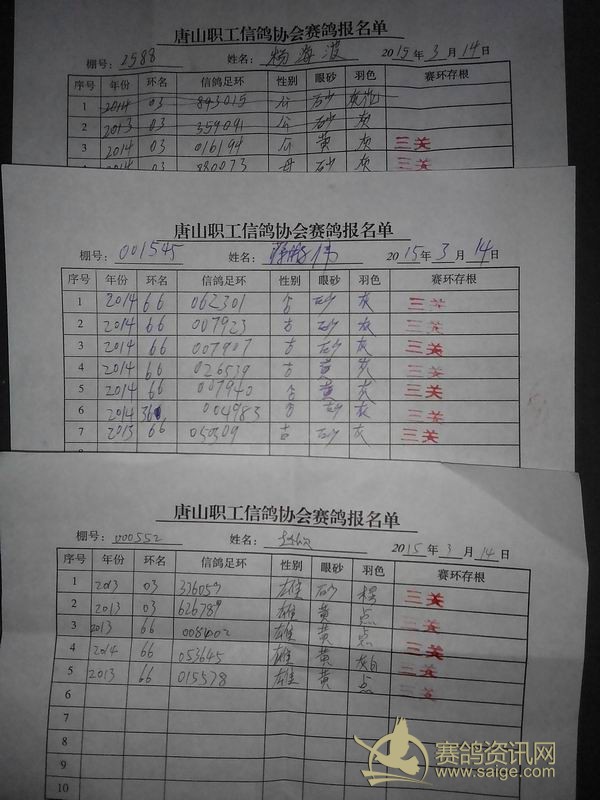 唐山职工信鸽协会赛鸽报名单
棚号: 2588 姓名: 杨海波 2015年3月14日
序号 年份 环名 信鸽足环 性别 眼砂 羽色 赛环存根
1 2014 03 843015 公 砂
2 2013 03 359091 公 砂 灰
3 2014 03 016194 公 黄 灰 三关
2014 03 880073 母 砂 灰 三关
唐山职工信鸽协会赛鸽报名单
棚号: 001545 姓名: 2015年3月14日
序号 年份 环名 信鸽足环 性别 眼砂 羽色 赛环存根
1 2014 66 062301 砂 灰 三关
2 2014 66 007923 砂 灰 三关
3 2014 66 007907 砂 灰 三关
4 2014 66 026539 黄 灰 三关
5 2014 66 007940 黄 灰 三关
6 2014 004983 砂 灰 三关
7 2013 66 050309 砂 灰 三关
唐山职工信鸽协会赛鸽报名单
棚号: 000552 姓名: 2015年3月14日
序号 年份 环名 信鸽足环 性别 眼砂 羽色 赛环存根
1 2013 03 雄 砂 三关
2 2013 03 雄 黄 点 三关
3 2013 66 雄 黄 点 三关
4 2014 66 053645 雄 黄 灰白 三关
5 2013 66 015578 雄 黄 点 三关
6
7
8
9
10
赛鸽资讯网
www.saige.com